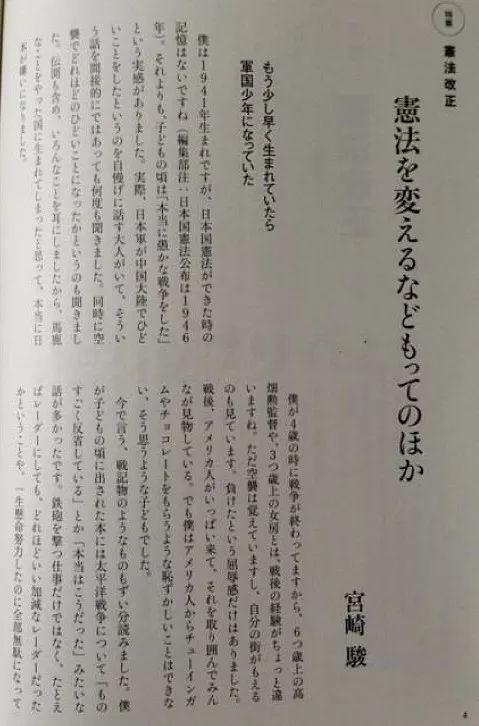 特集
憲法改正
憲法を変えるなどもってのほか
宮崎 駿
もう少し早く生まれていたら
軍国少年になっていた
僕は1941年生まれですが、日本国憲法ができた時の
記憶はないですね（編集部注：日本国憲法公布は1946
年）。それよりも、子どもの頃は「本当に愚かな戦争をした」
という実感がありました。実際、日本軍が中国大陸でひど
いことをしたというのを自慢げに話す大人がいて、そうい
う話を間接的にではあっても何度も聞きました。同時に空
襲でどれほどのひどいことになったかというのも聞きまし
た。伝聞も含め、いろんなことを耳にしましたから、馬鹿
なことをやった国に生まれてしまったと思って、本当に日
本が嫌いになりました。
僕が4歳の時に戦争が終わってますから、6つ歳上の高
畑勲監督や、3つ歳上の女房とは、戦後の経験がちょっと違
いますね。ただ空襲は覚えていますし、自分の街がもえる
のも見ています。負けたという屈辱感だけはありました。
戦後、アメリカ人がいっぱい来て、それを取り囲んでみん
なが見物している。でも僕はアメリカ人からチューインガ
ムやチョコレートをもらうような恥ずかしいことはできな
い、そう思うような子どもでした。
今で言う、戦記物のようなものもずい分読みました。僕
が子どもの頃に出された本には太平洋戦争について「もの
すごく反省している」とか「本当はこうだった」みたいな
話が多かったです。鉄砲を撃つ仕事だけではなく、たとえ
ばレーダーにしても、どれほどいい加減なレーダーだった
かということや、「一生懸命努力したのに全部無駄になって
4